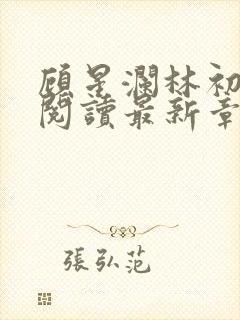 顾星瀾林初
閱讀最新章
張弘范